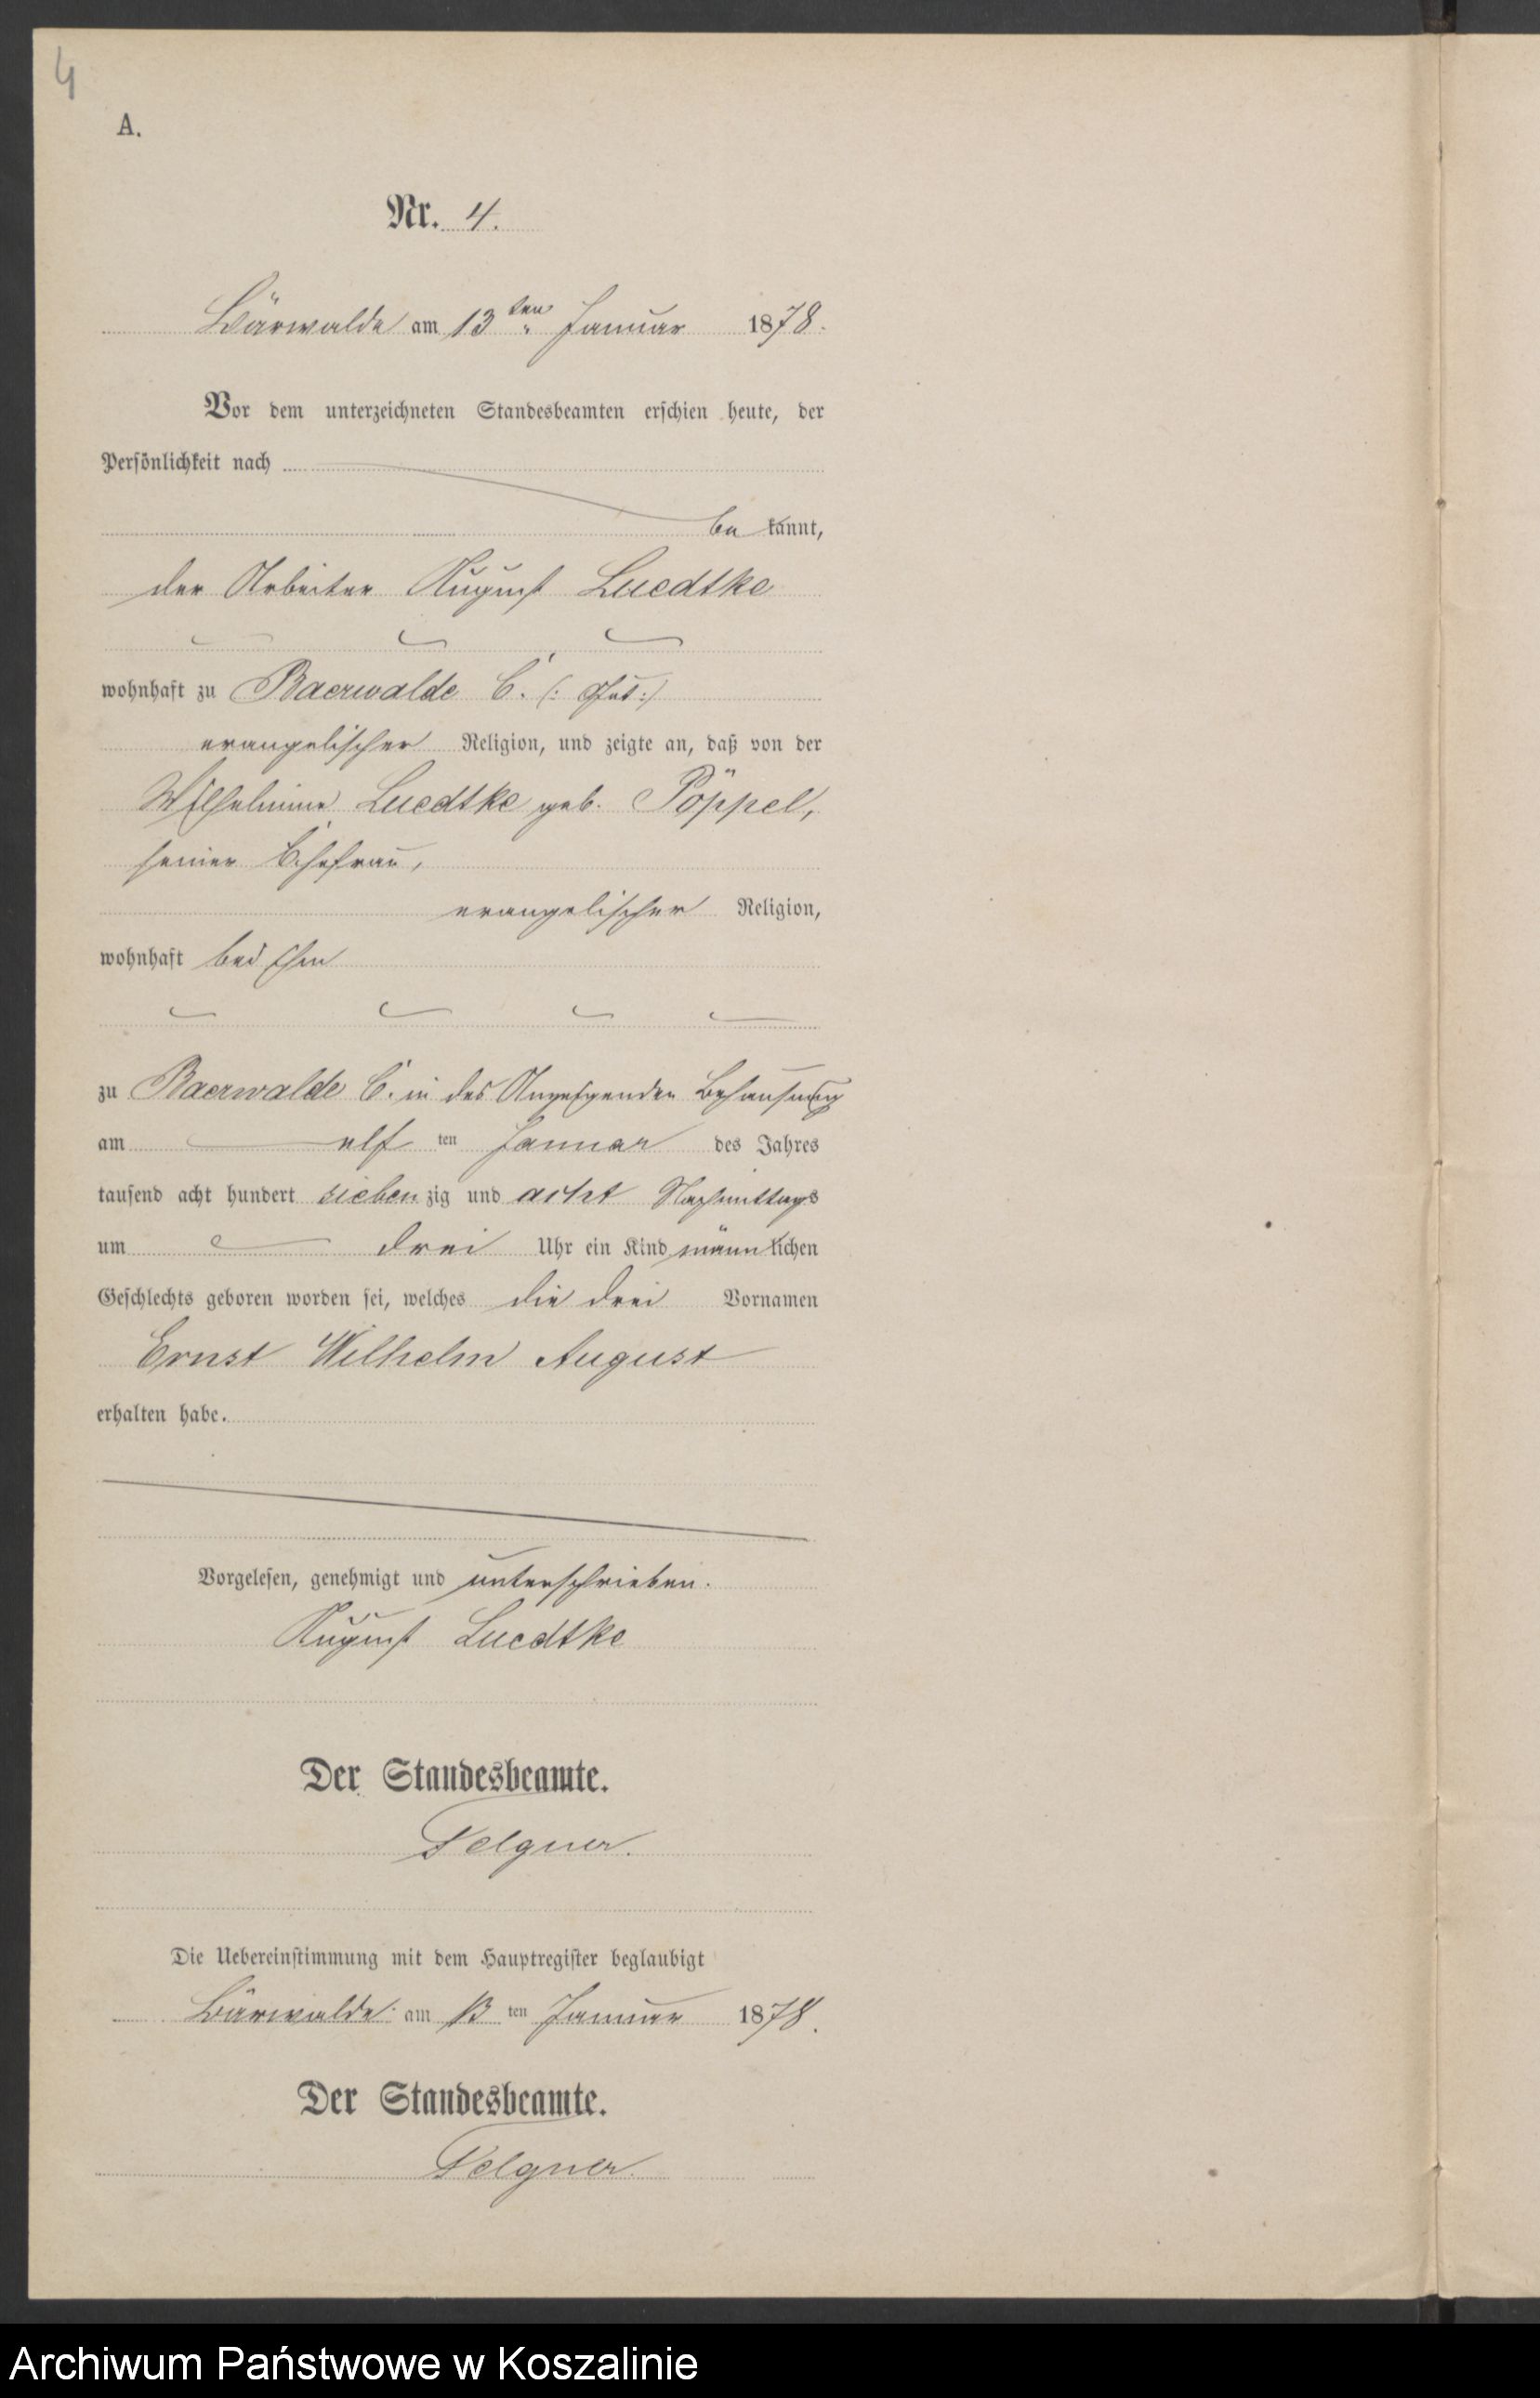 4
A.
Nr. 4.
Bärwalde am 13ten Januar 1878.
Vor dem unterzeichneten Standesbeamten erschien heute, der
Persönlichkeit nach
be kannt,
der Arbeiter August Luedtke
wohnhaft zu Baerwalde C. (: Gut :)
evangelischer Religion, und zeigte an, daß von der
Wilhelmine Luedtke geb. Pöppel,
seiner Ehefrau,
evangelischer Religion,
wohnhaft bei ihm
zu Baerwalde C. in des Anzeigenden Behausung
am elf ten Januar des Jahres
tausend acht hundert sieben zig und acht Nachmittags
um drei Uhr ein Kind männ lichen
Geschlechts geboren worden sei, welches die drei Vornamen
Ernst Wilhelm August
erhalten habe.
Vorgelesen, genehmigt und unterschrieben.
August Luedtke
Der Standesbeamte.
Felgner.
Die Uebereinstimmung mit dem Hauptregister beglaubigt
Bärwalde am 13 ten Januar 1878.
Der Standesbeamte.
Felgner.
Archiwum Państwowe w Koszalinie